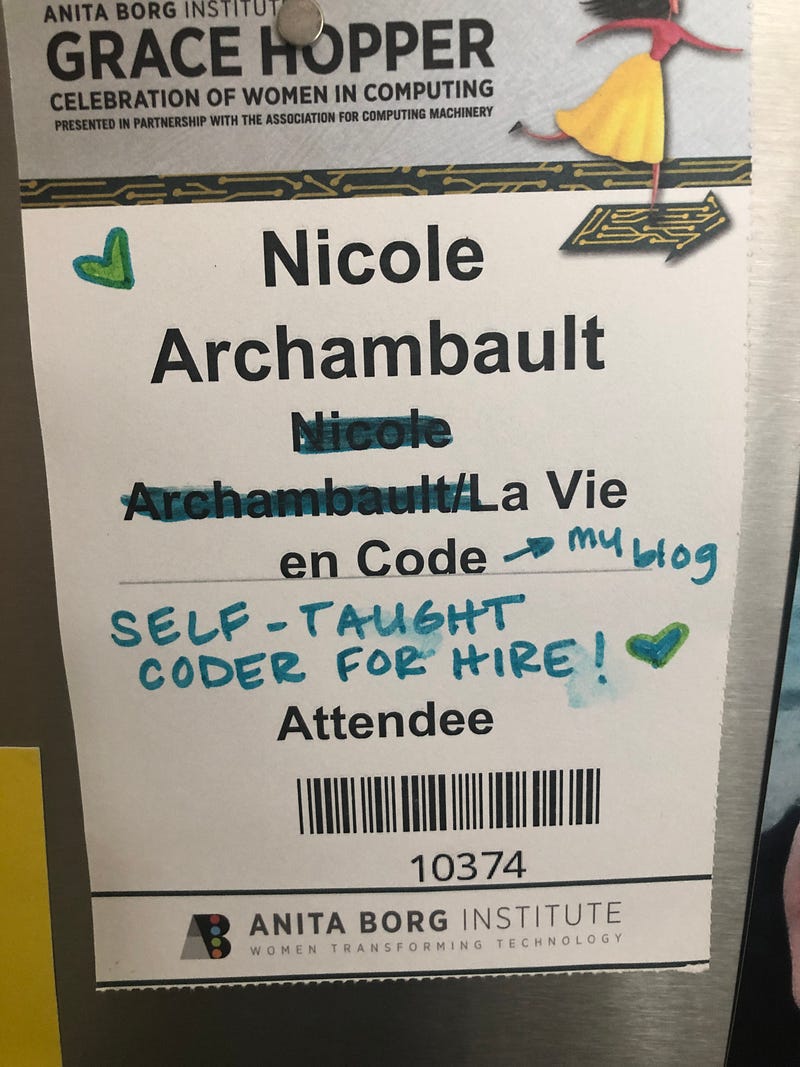 ANITA BORG INSTITUT
GRACE HOPPER
CELEBRATION OF WOMEN IN COMPUTING
PRESENTED IN PARTNERSHIP WITH THE ASSOCIATION FOR COMPUTING MACHINERY
Nicole
Archambault
Nicole
Archambault/La Vie
en Code → my blog
SELF-TAUGHT
CODER FOR HIRE!
Attendee
10374
ANITA BORG INSTITUTE
WOMEN TRANSFORMING TECHNOLOGY